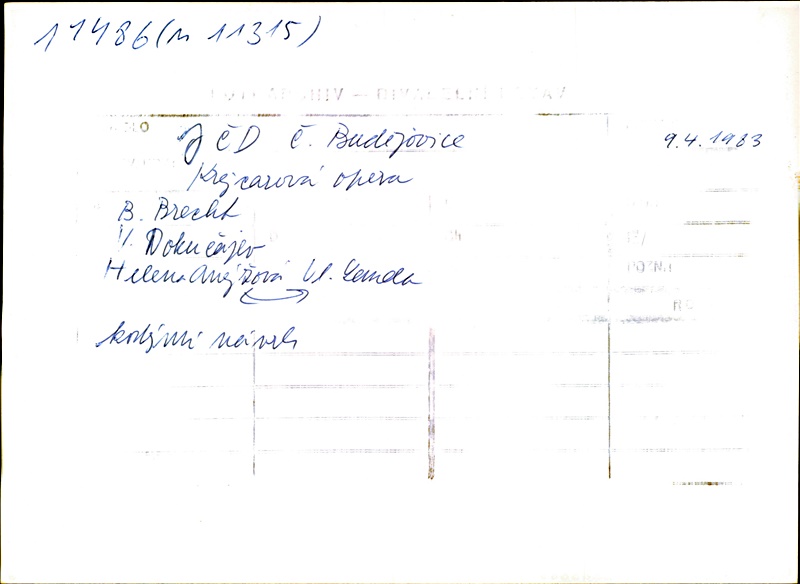 11486 (n 11315)
JČD Č. Budějovice 9.4.1983
Krejcarová opera
B. Brecht
V. Dokučajev
Helena Anýžová Vl. Landa
kostýmní návrh